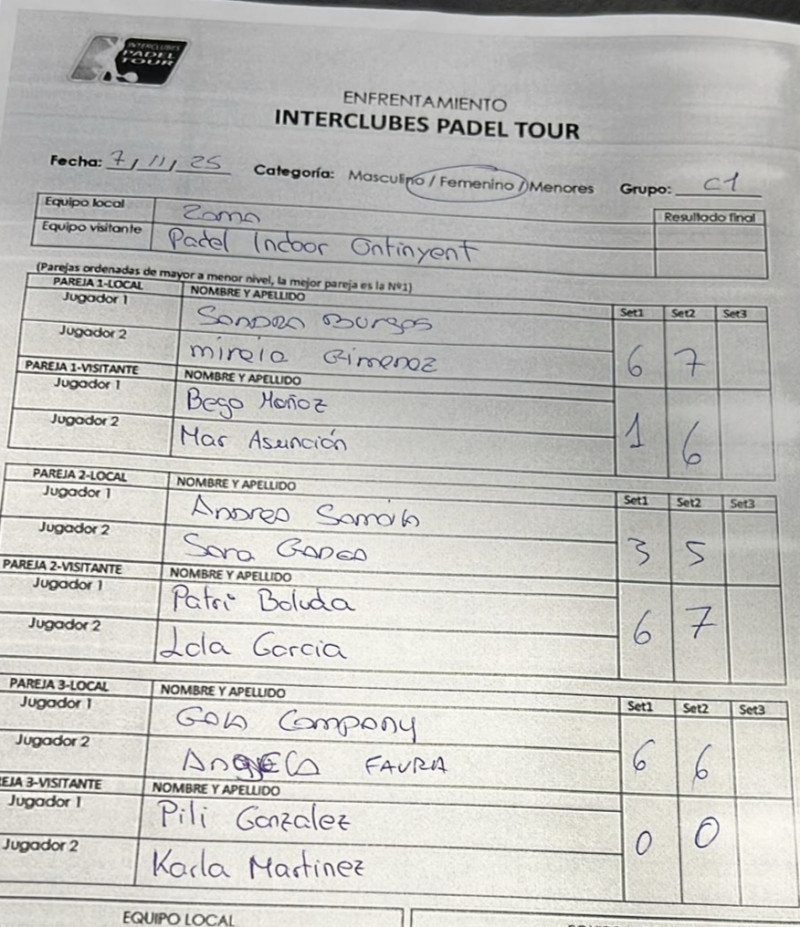 INTERCLUBES
PADEL
TOUR
ENFRENTAMIENTO
INTERCLUBES PADEL TOUR
Fecha: 7/11/25 Categoría: Masculino / Femenino / Menores Grupo: C1
Equipo local Zama Resultado final
Equipo visitante Padel Indoor Ontinyent
(Parejas ordenadas de mayor a menor nivel, la mejor pareja es la Nº1)
PAREJA 1-LOCAL NOMBRE Y APELLIDO Set1 Set2 Set3
Jugador 1 Sandra Burgos
Jugador 2 mireia Gimenez 6 7
PAREJA 1-VISITANTE NOMBRE Y APELLIDO
Jugador 1 Bego Muñoz
Jugador 2 Mar Asunción 1 6
PAREJA 2-LOCAL NOMBRE Y APELLIDO Set1 Set2 Set3
Jugador 1 Andrea
Jugador 2 Sara 3 5
PAREJA 2-VISITANTE NOMBRE Y APELLIDO
Jugador 1 Patri Boluda
Jugador 2 Lola Garcia 6 7
PAREJA 3-LOCAL NOMBRE Y APELLIDO Set1 Set2 Set3
Jugador 1 Company
Jugador 2 FAURA 6 6
EJA 3-VISITANTE NOMBRE Y APELLIDO
Jugador 1 Pili Gonzalez
Jugador 2 Karla Martinez 0 0
EQUIPO LOCAL